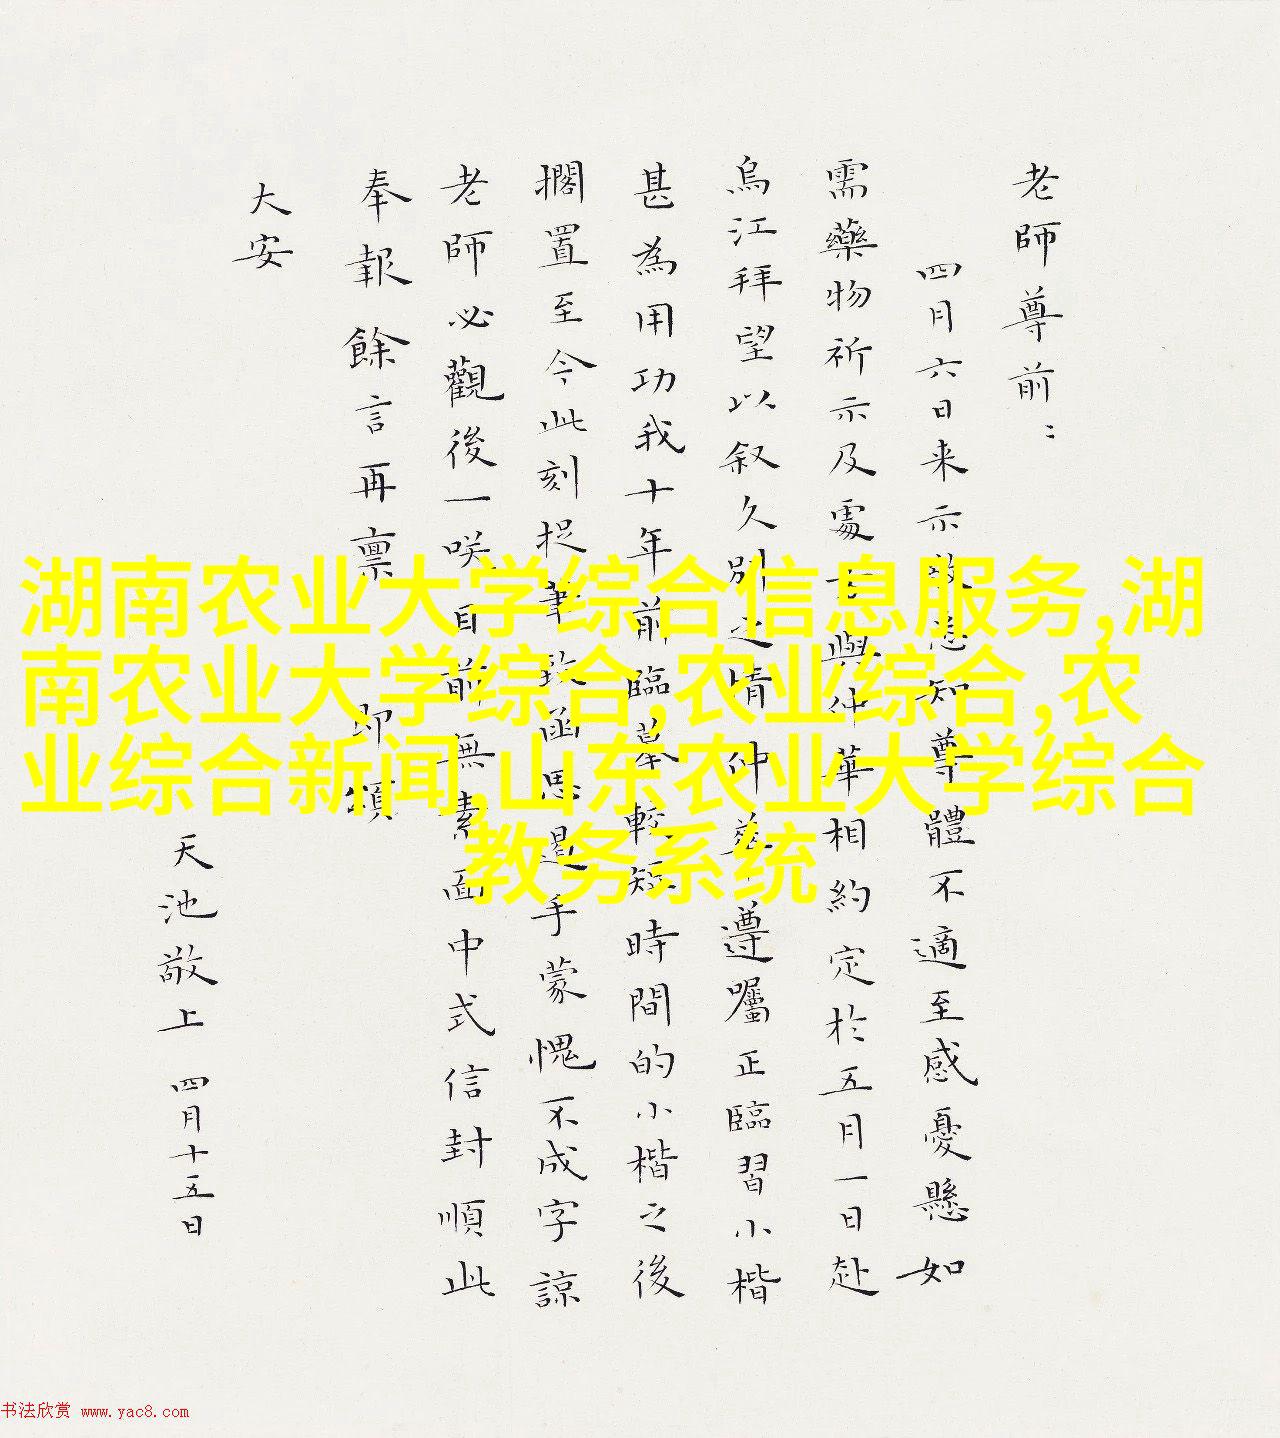 老師尊前：
四月六日来示敬悉知尊體不適至感憂懸如
需藥物祈示及處士與仲華相約定於五月一日赴
烏江拜望以叙久別之情仲華遵囑正臨習小楷
甚為用功我十年前臨摹較短時間的小楷之後
擱置至今此刻捉筆致函思遏手蒙愧不成字諒
老師必觀後一咲目前無素面中式信封順此
奉報餘言再禀即頌
大安
天池敬上 四月十五日
湖南农业大学综合信息服务,湖
南农业大学综合,农业综合,农
业综合新闻,山东农业大学综合
教务系统
书法欣赏 www.yac8.com